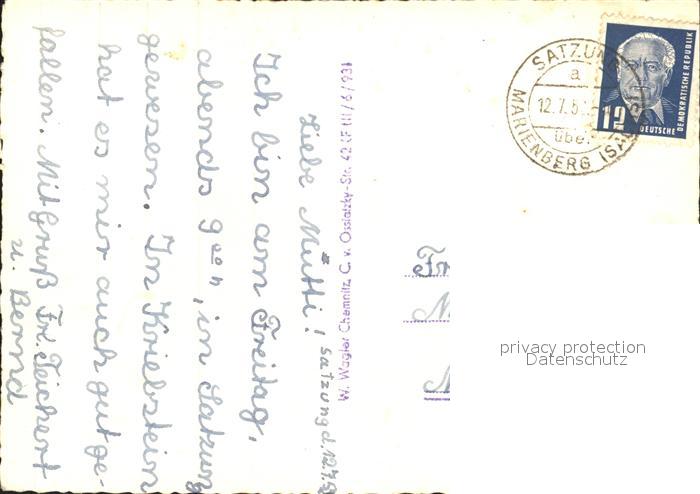 Satzung d. 12.7.5
Liebe Mutti!
Ich bin am Freitag,
abends 9 00 h, in Satzung
gewesen. In Kriebstein
hat es mir auch gut ge-
fallen. Mit Gruß Frl. Teichert
u. Bernd
W. Wagler Chemnitz, C. v. Ossietzky-Str. 42 (F III/6/93)
SATZUNG
a
12.7.5
über
MARIENBERG (SA
12
DEUTSCHE
DEMOKRATISCHE REPUBLIK
Fr
M
privacy protection
Datenschutz